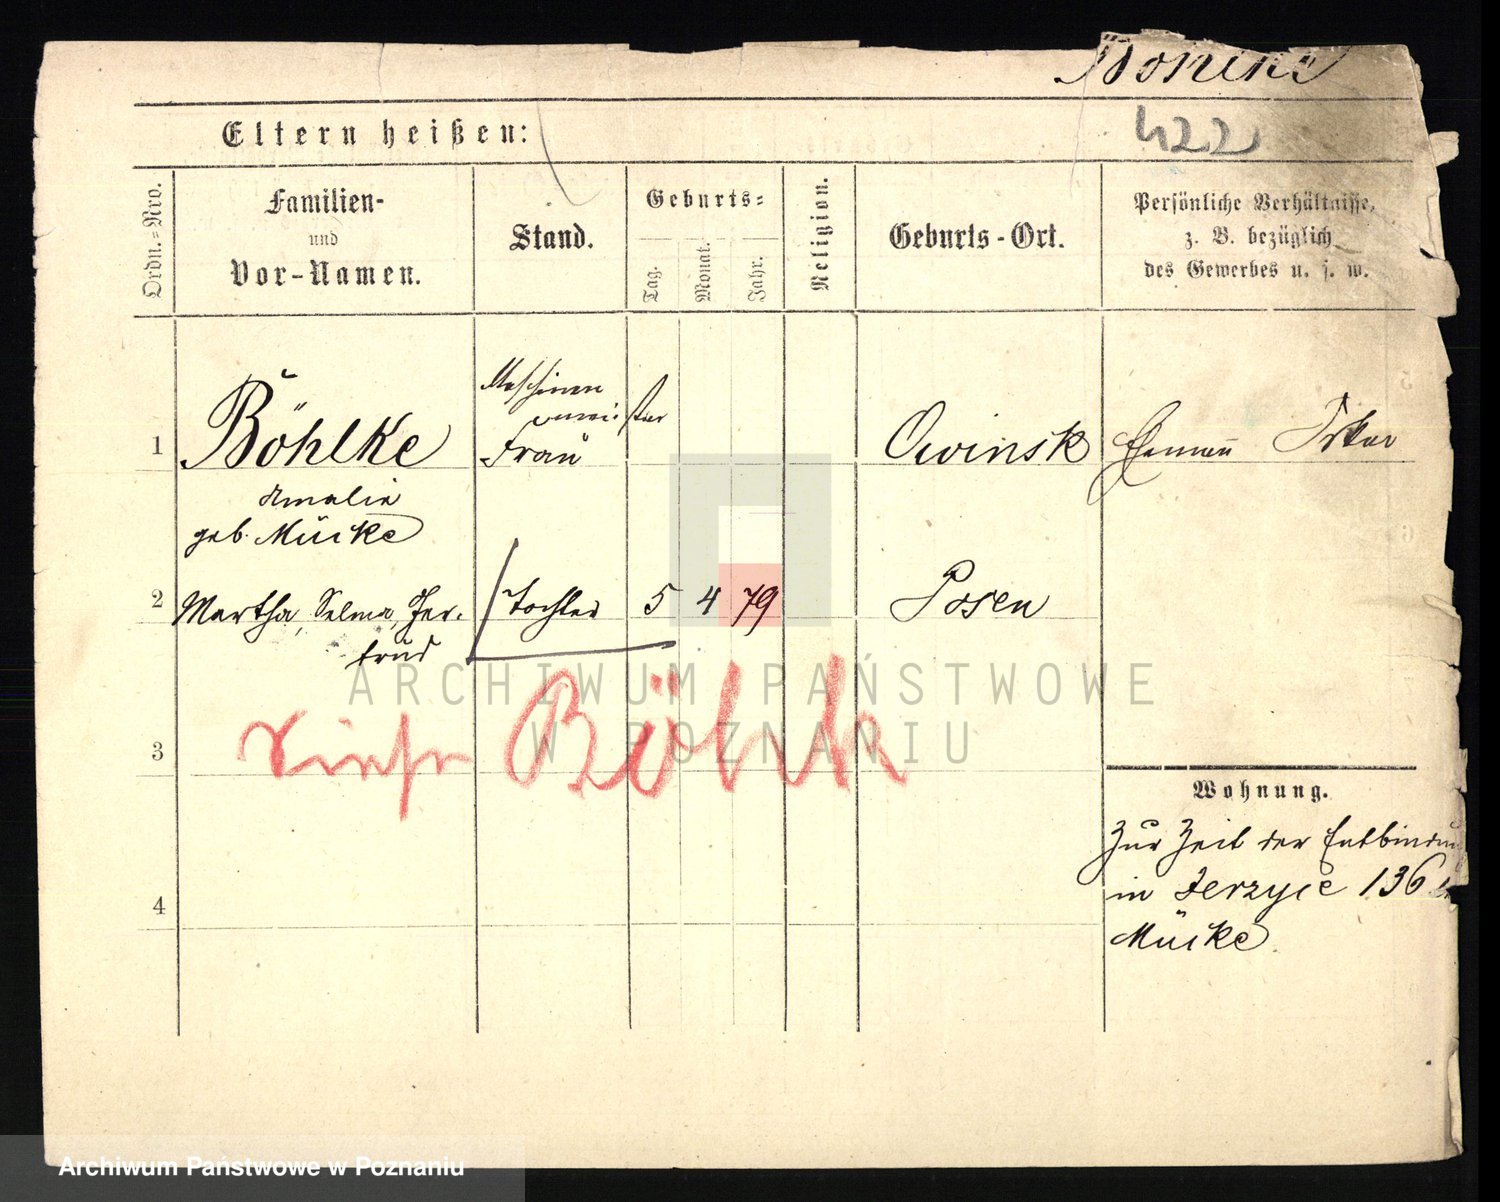 Böhlke
422
Eltern heißen:
Ordn.-Nro.
Familien-
und
Vor-Namen.
Stand.
Geburts-
Tag.
Monat.
Jahr.
Religion.
Geburts-Ort.
Persönliche Verhältnisse,
z. B. bezüglich
des Gewerbes u. s. w.
Maschinen
meister
1 Böhlke Frau Owinsk
Amalie
geb. Mücke
2 Martha, Selma, Ger- Tochter 5 4 79 Posen
trud
ARCHIWUM PAŃSTWOWE
W POZNANIU
3 siehe Böhlk
Wohnung.
Zur Zeit der Entbindun
in Jerzyce 136
4
Mücke
Archiwum Państwowe w Poznaniu